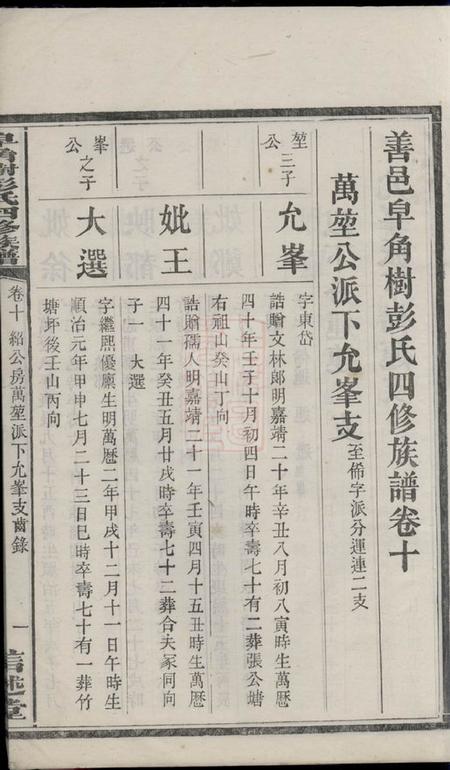 善邑皁角樹彭氏四修族譜卷十
萬堃公派下允峯支至侕字派分運連二支
堃公三子
允峯
字東岱
誥贈文林郎明嘉靖二十年辛丑八月初八寅時生萬曆
四十年壬子十月初四日午時卒壽七十有二葬張公塘
右祖山癸山丁向
妣王
誥贈孺人明嘉靖二十一年壬寅四月十五丑時生萬曆
四十一年癸丑五月廿戌時卒壽七十二葬合夫冢同向
子一 大選
峯公之子
大選
字繼熙優廩生明萬曆二年甲戌十二月十一日午時生
順治元年甲申七月二十三日巳時卒壽七十有一葬竹
塘坪後壬山丙向
皁角樹彭氏四修族譜
卷十 紹公房萬堃派下允峯支齒錄
一
信述堂